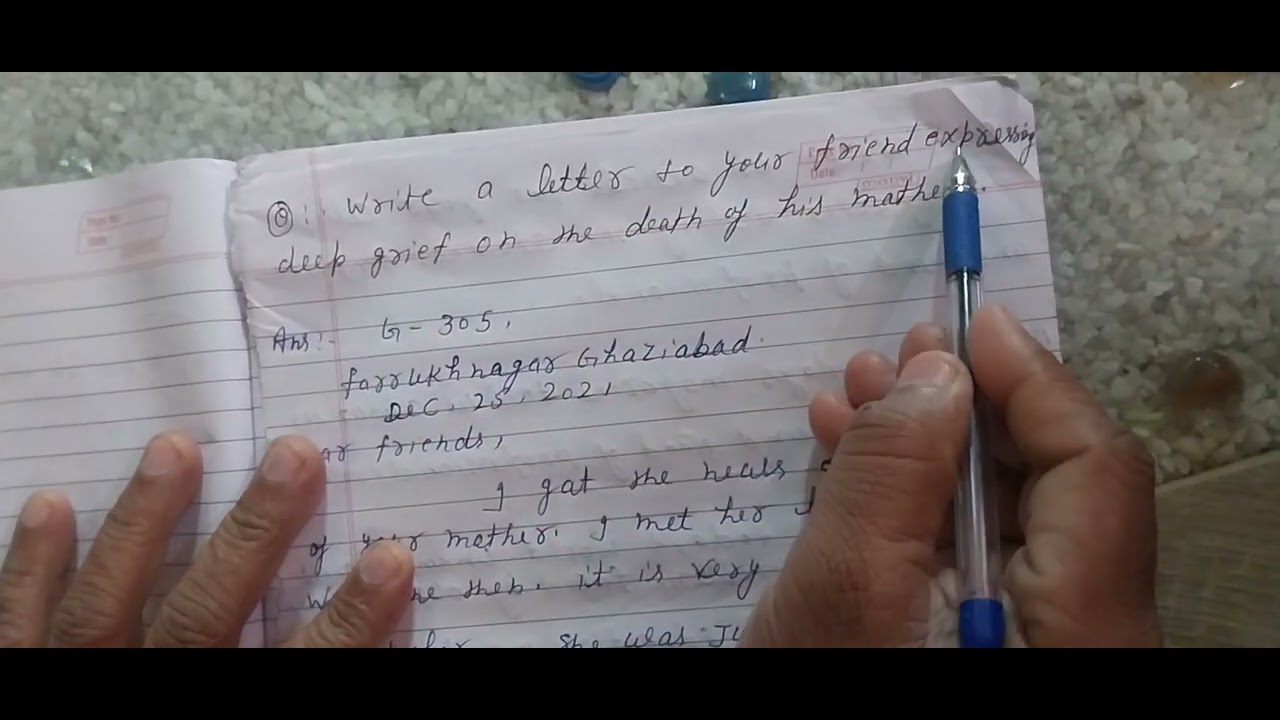 Q: Write a letter to your friend expressing
deep grief on the death of his mather.
Ans:- G-305,
farrukhnagar Ghaziabad.
Dec. 25, 2021
ar friends,
I gat the neals
of your mather. I met her
then. it is very
she was